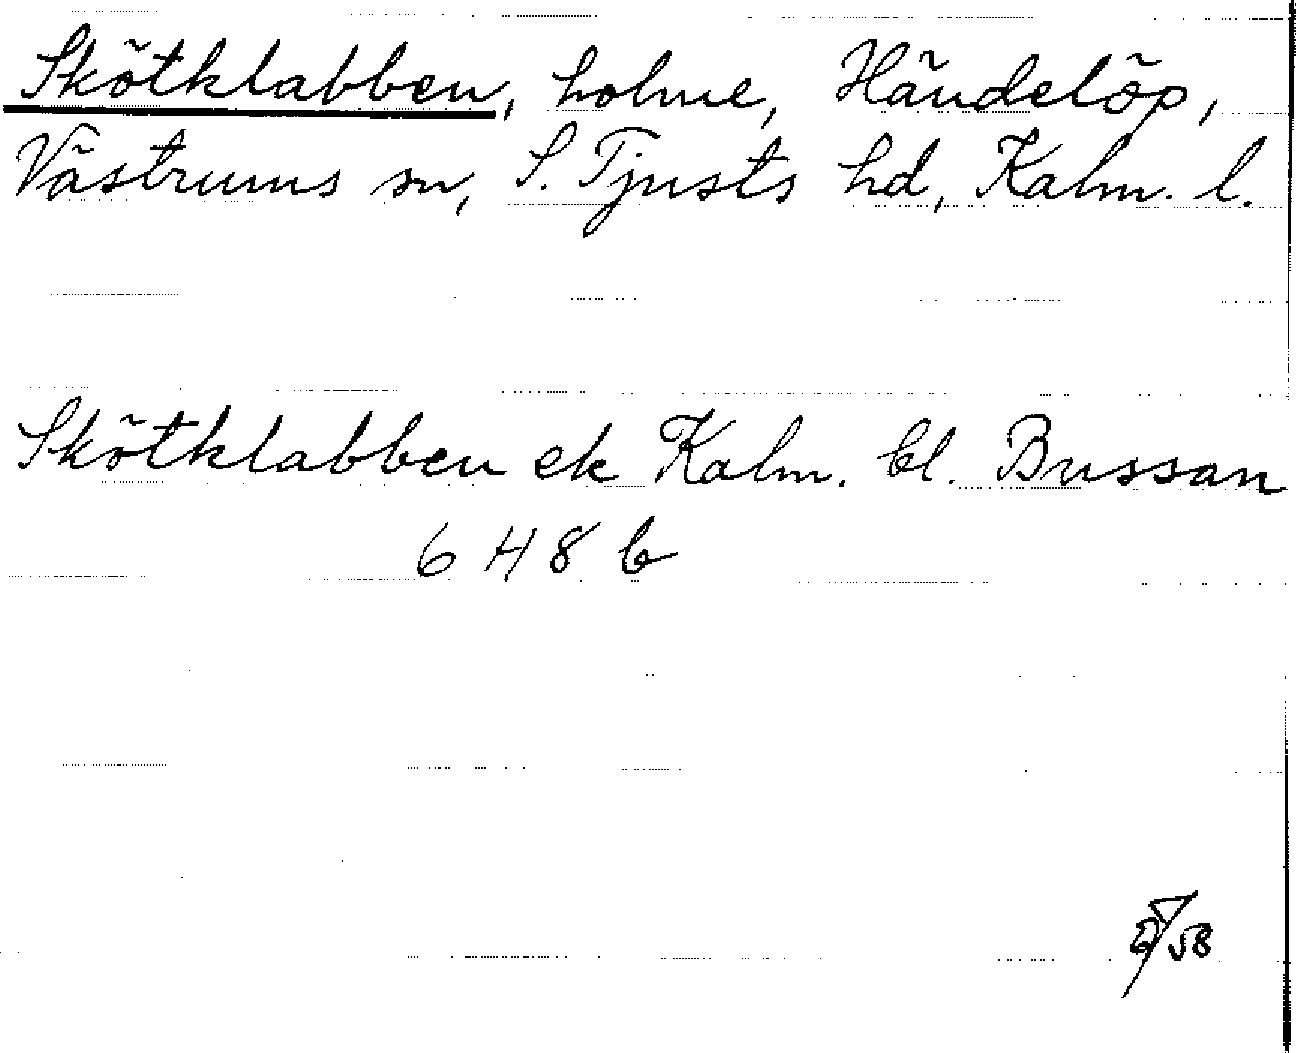 Skötklabben, holme, Händelöp,
Västrums sn, S. Tjusts hd, Kalm. l.
Skötklabben ek Kalm. bl. Bussan
6 H 8 b